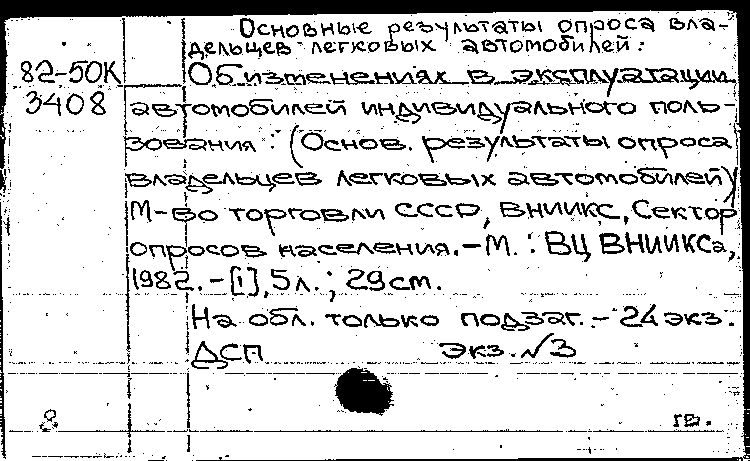 Основные результаты опроса вла-
дельцев легковых автомобилей:
82-50К
Об изменениях в эксплуатации
3408
автомобилей индивидуального поль-
зования: (Основ. результаты опроса
владельцев легковых автомобилей)
М-во торговли СССР, ВНИИКС, Сектор
опросов населения. - М. : ВЦ ВНИИКСа,
1982. - [1], 5 л. ; 29 см.
На обл. только подзаг. - 24 экз.
ДСП экз. №3
8 гв.